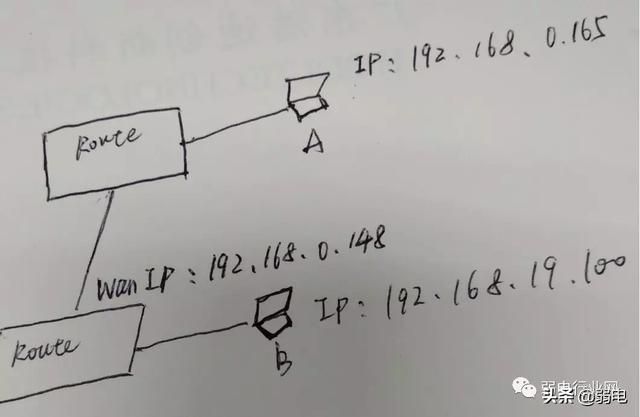 IP: 192.168.0.165
Route
A
Wan IP: 192.168.0.148
IP: 192.168.19.100
Route
B
弱电行业网
头条 @弱电